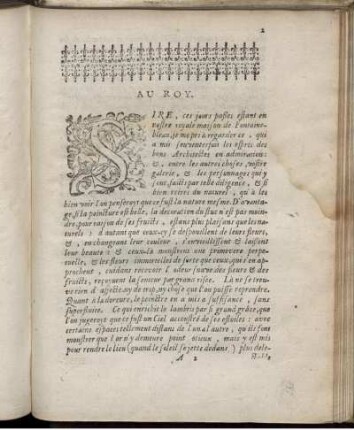 2
AU ROY.
SIRE, ces jours passés estant en
vostre royale maison de Fontaine-
bleau, je me pris à regarder ce, qui
a mis souventesfois les esprits des
bons Architectes en admiration:
&, entre les autres choses, vostre
galerie, & les personnages qui y
sont, faits par telle diligence, & si
bien tirez du naturel, qu'à les
bien voir l'on penseroit que ce fust la nature mesme. D'avanta-
ge, si la paincture est belle, la decoration du stuc n'est pas moin-
dre, pour raison de ses fruicts, estans plus plaisans que les na-
turels: d'autant que ceux-cy se despouillent de leurs fleurs,
&, en changeant leur couleur, s'envieillissent & laissent
leur beauté: & ceux-là monstrent une primevere perpe-
tuelle, & les fleurs immortelles: de sorte que ceux, qui s'en ap-
prochent, cuidans recevoir l'odeur suave des fleurs & des
fruicts,
Quant à la dorure, le peinctre en a mis à suffisance, sans
superfluité. Ce qui enrichit le lambris par si grand' grace, que
l'on jugeroit que ce fust un Ciel accoustré de ses estoiles: avec
certains espaces tellement distans de l'un à l'autre, qu'ils font
monstrer que l'or n'y demeure point
pour rendre le lieu (quand le soleil se jette dedans) plus
A 2